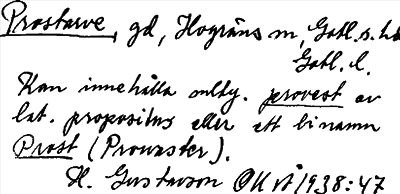 Prostarve, gd, Hogräns sn, Gotl. s. hd
Gotl. l.
Kan innehålla mlty. provest av
lat. propositus eller ett binamn
Prost (Prowaster).
H. Gustavson OK vt 1938:47